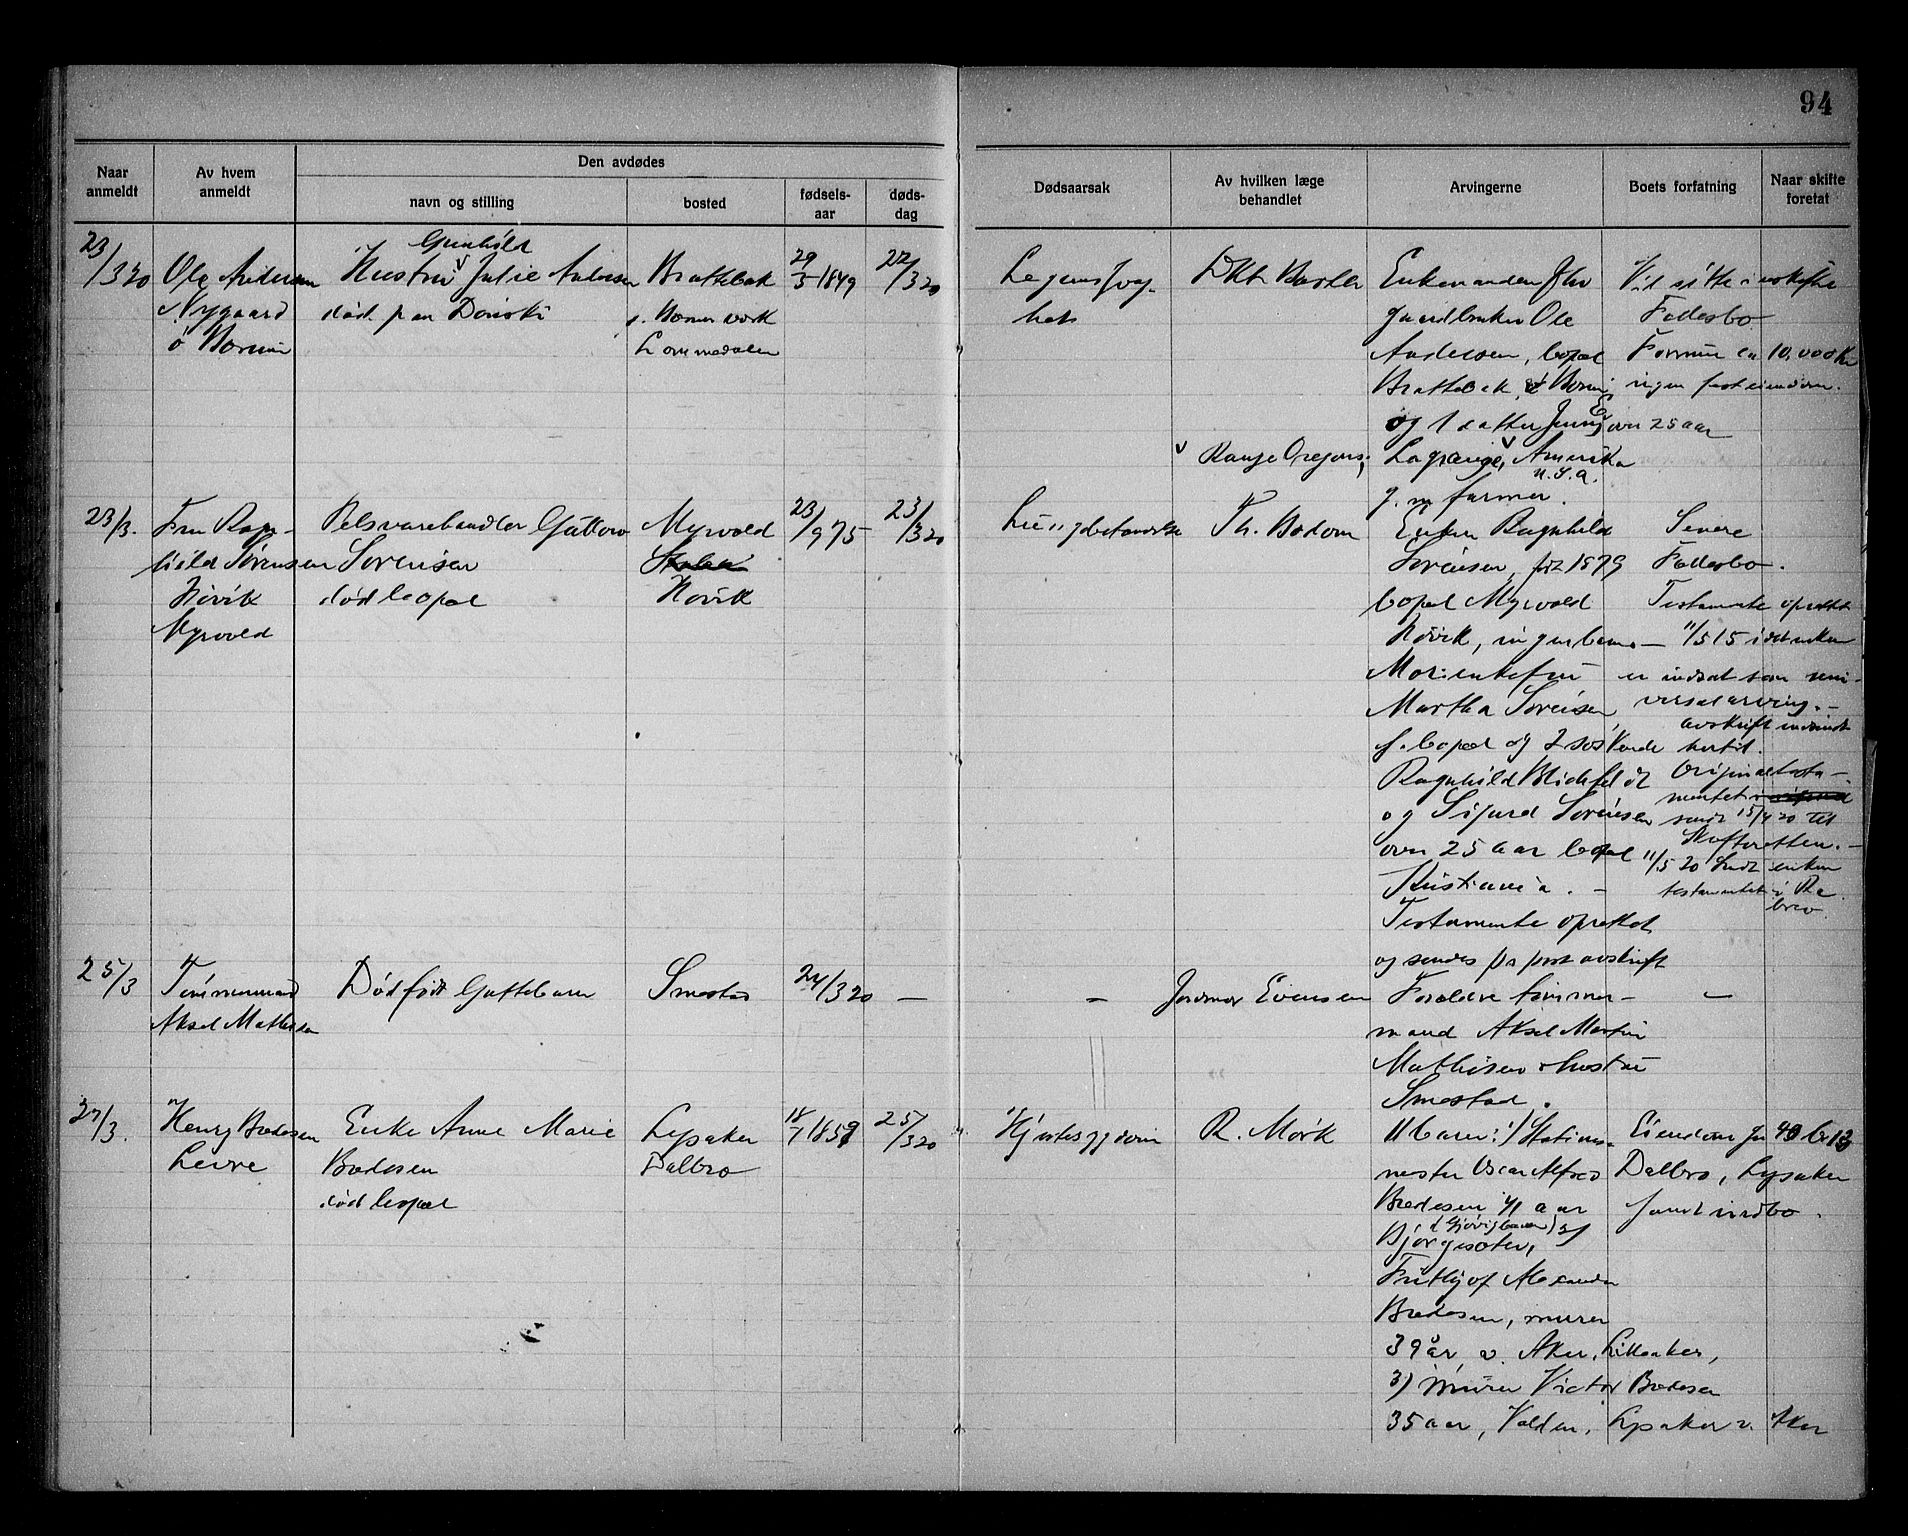 94
Den avdødes
Naar anmeldt
Av hvem anmeldt
navn og stilling
bosted
fødsels-aar
døds-dag
Dødsaarsak
Av hvilken læge behandlet
Arvingerne
Boets forfatning
Naar skifte foretat
23/3 20
Ole Andersen
Nygaard
Gunhild
Hustru Julie Andersen
død paa
Brattebak
Lommedalen
29/3 1849
22/3 20
Enkemanden
gaardbruker Ole
Andersen, bopæl
Brattebak,
og 1 datter Jenny over 25 aar
Range Oregons,
Lagrange, Amerika
U.S.A.
g.m. farmer.
Vil sitte i uskiftet
Fællesbo
Formue ca 10,000 Kr
ingen fast eiendom.
23/3.
Fru Ragn-
hild Sørensen
Høvik
Myrvold
Pelsvarehandler
Sørensen
død bopæl
Myrvold
Høvik
23/9 75
23/3 20
Lungebetændelse
Th. Bødom
Enken Ragnhild
Sørensen, født 1879
bopæl Myrvold
Høvik, ingen barn
Martha Sørensen,
s. bopæl og 2 søskende
Ragnhild Blichfeldt
og Sigurd Sørensen
over 25 aar bopæl
Kristiania.
Testamente oprettet
og sendes pr post avskrift
Fællesbo.
Testamente oprettet
11/5 15 i det enken
er indsat som uni-
versalarving.
avskrift indsendt
hertil.
Original testa-
mentet
sendt 15/4 20 til
Skifteretten.
11/5 20 sendt enken
testamentet i
brev.
25/3
Tømmermand
Aksel Mathisen
Dødfødt Guttebarn
Smestad
24/3 20
—
—
Jordmor Evensen
Forældre tømmer-
mand Aksel Martin
Mathisen & hustru
Smestad.
—
27/3.
Henry Bredesen
Enke Anne Marie
Bredesen
død bopæl
Lysaker
Dalbro
18/7 1859
25/3 20
Hjertesygdom
R. Mörk
Barn: 1) Stations-
mester Oscar Alfred
Bredesen 41 aar
Fritjof Alexander
Bredesen, murer
39 år v. Aker, Lilleaker,
3) murer Victor Bredesen
35 aar, Volden, Lysaker v. Aker
Eiendom
Dalbro, Lysaker
samt indbo.